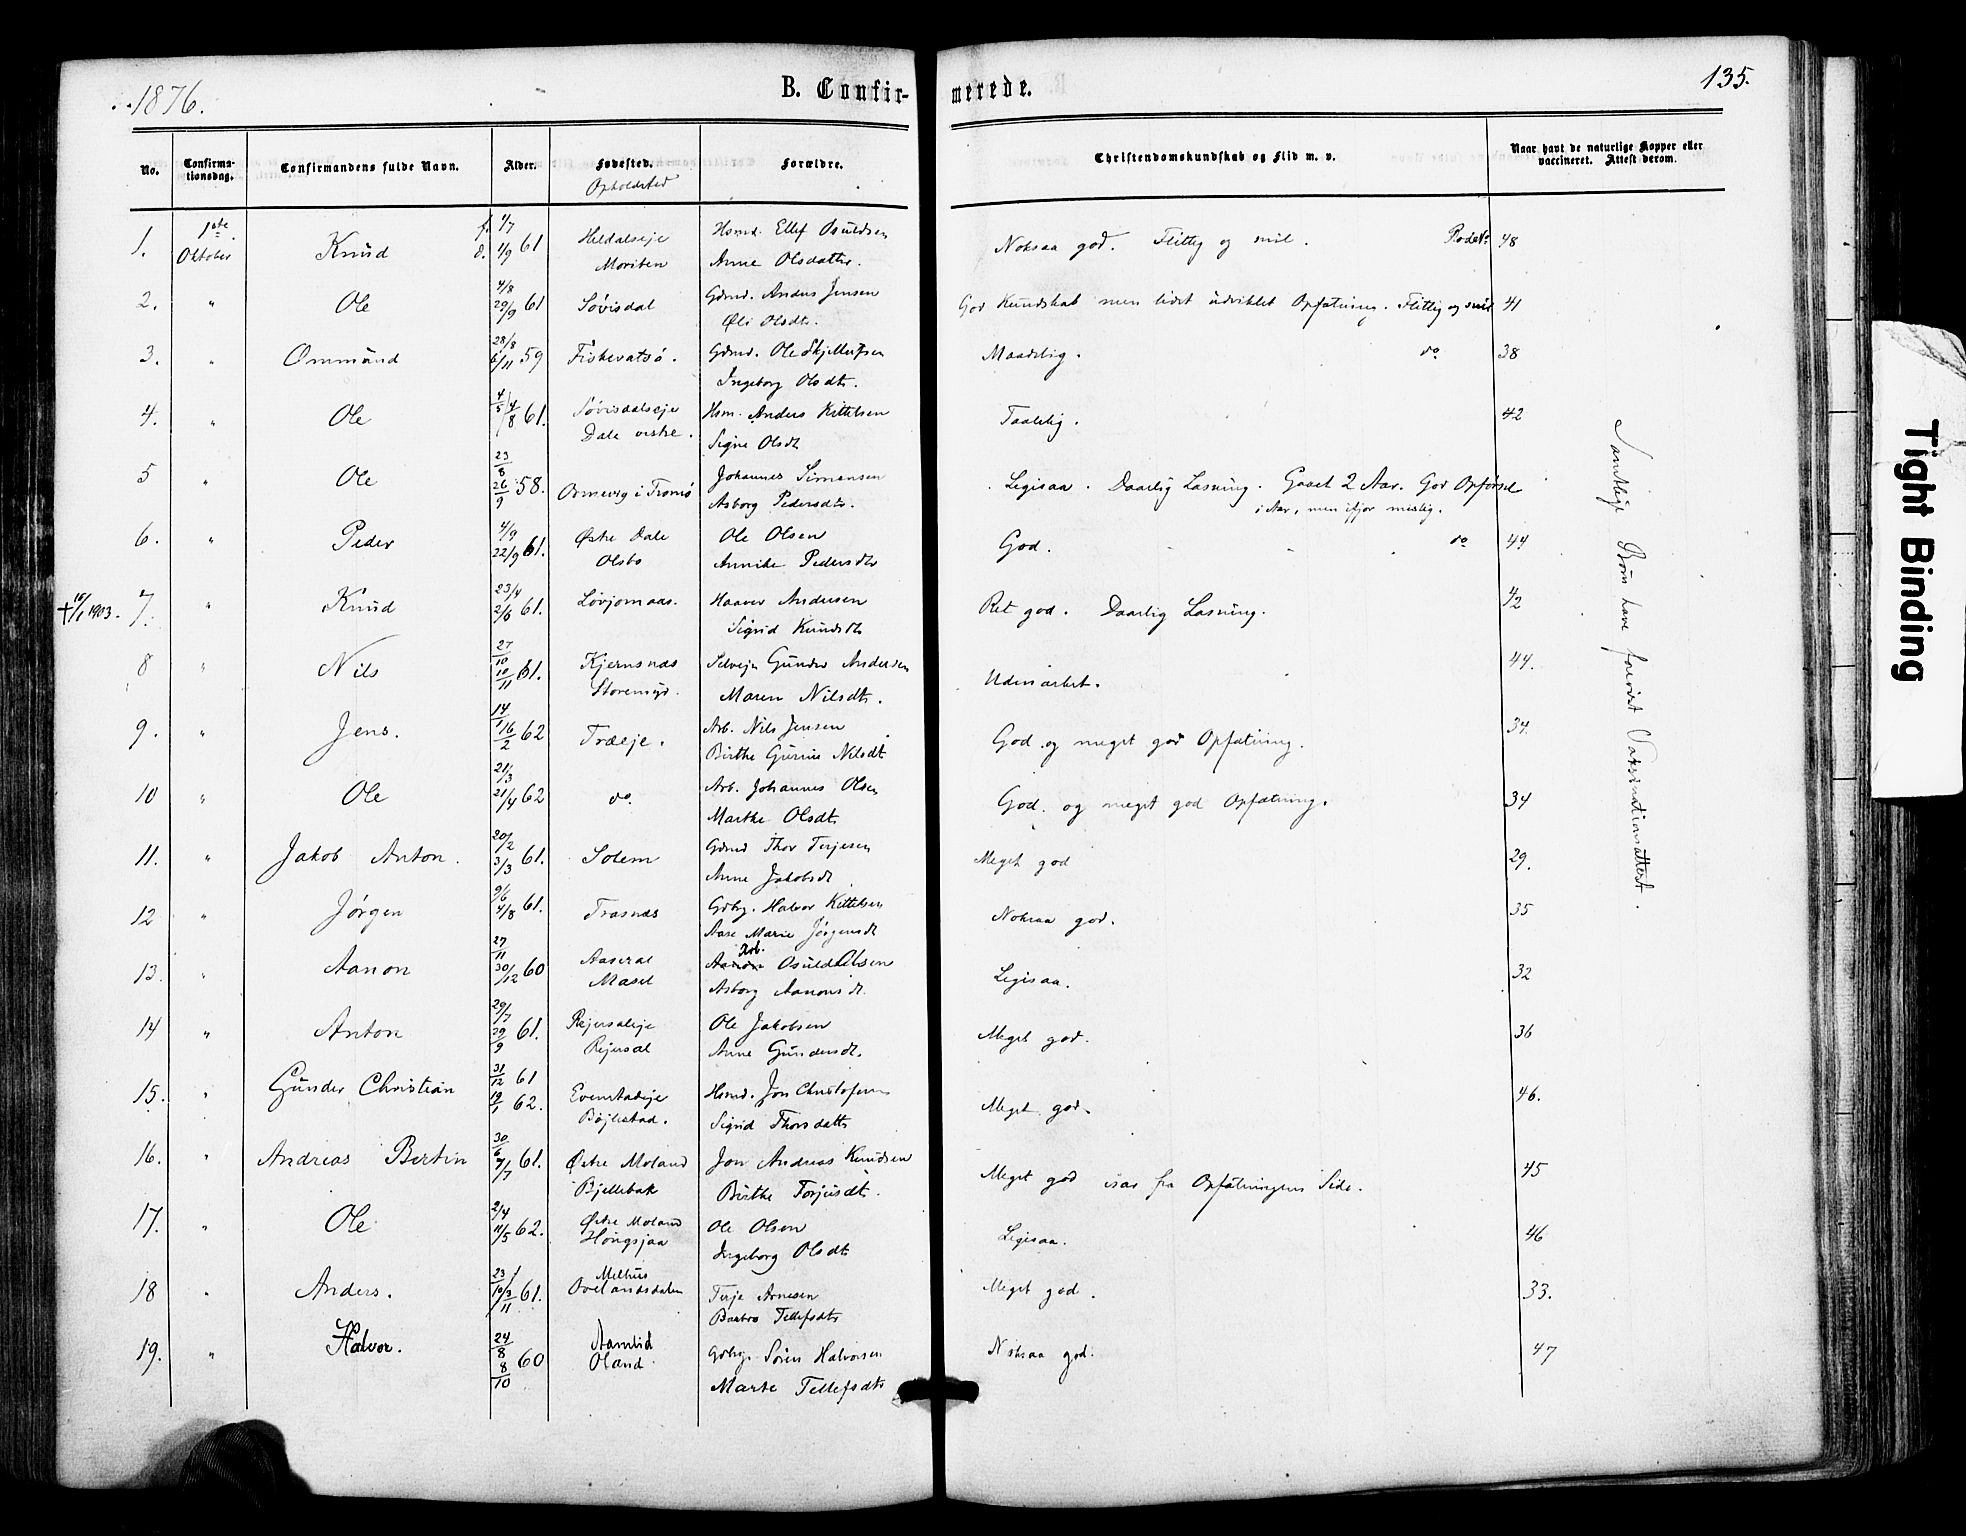 1876.
B. Confir-
merede.
135.
No.
Confirma-
tionsdag.
Confirmandens fulde Navn.
Alder.
Fødested.
Opholdsted
Forældre.
Christendomskundskab og Flid m. v.
Naar havt de naturlige Kopper eller
vaccineret. Attest derom.
1. 1ste Oktober Knud f. 1/7 d. 1/9 61 Heldalseje Hsmd. Ellef Osuldsen Noksaa god. Flittig og snil. 48
Moripen Anne Olsdatter.
2. " Ole 4/8 29/9 61 Løvisdal Gdmd. Anders Jensen God Kundskab men lidet udviklet Opfatning. Flittig og snil 41
Olsdtr.
3. " Ommund 28/8 6/11 59 Fiskevatsø. Gdmd. Ole Skjellufsen Maadelig. do 38
Ingeborg Olsdtr.
4. " Ole 4/5 4/8 61. Løvisdalseje Hsm. Anders Kittelsen Taalelig. 42
Dale vestre. Signe Olsdt
5 " Ole 23/8 26/9 58. Ormevig i Tromø Johannes Simonsen Ligesaa. Daarlig Læsning. Gaaet 2 Aar. God Opførsel
Asborg Pedersdtr. i Aar, men ifjor mislig.
6. " Peder 4/9 22/9 61. Østre Dale Ole Olsen God. do 44
Olsbo Annike Pedersdtr
+ 16/1 1903. 7. " Knud 23/4 2/6 61. Løvjomaas. Haaver Andersen Ret god. Daarlig Læsning. 42
Sigrid Knudsdtr
8 " Nils 27/10 10/11 61. Kjernsnæs Selvejer Gunder Andersen Udmærket. 44.
Storemyr. Maren Nilsdtr.
9. " Jens. 14/1 16/2 62 Træeje. Arb. Nils Jensen God og meget god Opfatning. 34.
Birthe Gurine Nilsdt
10 " Ole 21/3 21/4 62 do. Arb. Johannes Olsen God og meget god Opfatning. 34
Marthe Olsdt.
11. " Jakob Anton. 20/2 3/3 61. Solem Gdmd Thor Terjesen Meget god 29.
Anne Jakobsdt
12 " Jørgen 9/6 4/8 61. Træsnæs Gdbr. Halvor Kittelsen Noksaa god. 35
Aase Marie Jørgensdt
13. " Aanon 27/11 30/12 60 Aaseral Arb. Osuld Olsen Ligesaa. 32
Masel Asborg Aanonsdt.
14 " Anton 29/7 29/9 61. Rejersaleje Ole Jakobsen Meget god. 36
Rejersal Anne Gundersdt.
15. " Gunder Christian 31/12 61 19/1 62. Evenstadeje Hsmd. Jon Christofersen Meget god. 46.
Bøjlestad. Sigrid Thorsdatter
16. " Andreas Bertin 30/6 7/7 61. Østre Moland Jon Andreas Knudsen Meget god især fra Opfatningens Side. 45
Bjellebak Birthe Torjusdt.
17. " Ole 2/4 11/5 62. Østre Moland Ole Olsen Ligesaa. 46
Hongsjaa Ingeborg Olsdtr
18 " Anders. 23/10 3/11 61. Melhus Terje Arnesen Meget god. 33.
Ovelandsdalen Barbro Tellefsdtr
19. " Halvor. 24/8 8/10 60 Aamlid Gdbr. Søren Halvorsen Noksaa god. 47
Oland Marte Tellefsdtr
Samtlige Børn have forevist Vaksinationsattest.
Tight Binding